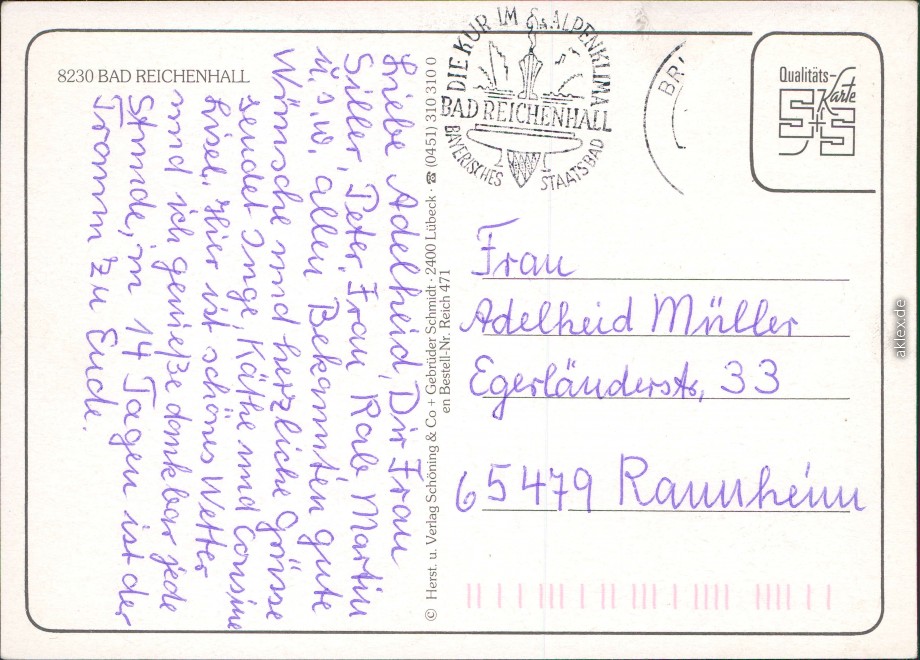 8230 BAD REICHENHALL
Liebe Adelheid, Dir Frau
Siller, Peter, Frau Rab Martin
u.s.w. allen Bekannten gute
Wünsche und herzliche Grüsse
sendet Inge, Käthe und Cousine
Lisel. Hier ist schönes Wetter
und ich genieße dankbar jede
Stunde, in 14 Tagen ist der
Traum zu Ende.
© Herst. u. Verlag Schöning & Co + Gebrüder Schmidt · 2400 Lübeck · ☎ (0451) 310 310 0
en Bestell-Nr. Reich 471
DIE KUR IM ALPENKLIMA
BAD REICHENHALL
BAYERISCHES STAATSBAD
BR
Qualitäts-
Karte
S+S
Frau
Adelheid Müller
Egerländerstr, 33
65479 Raunheim
aklex.de